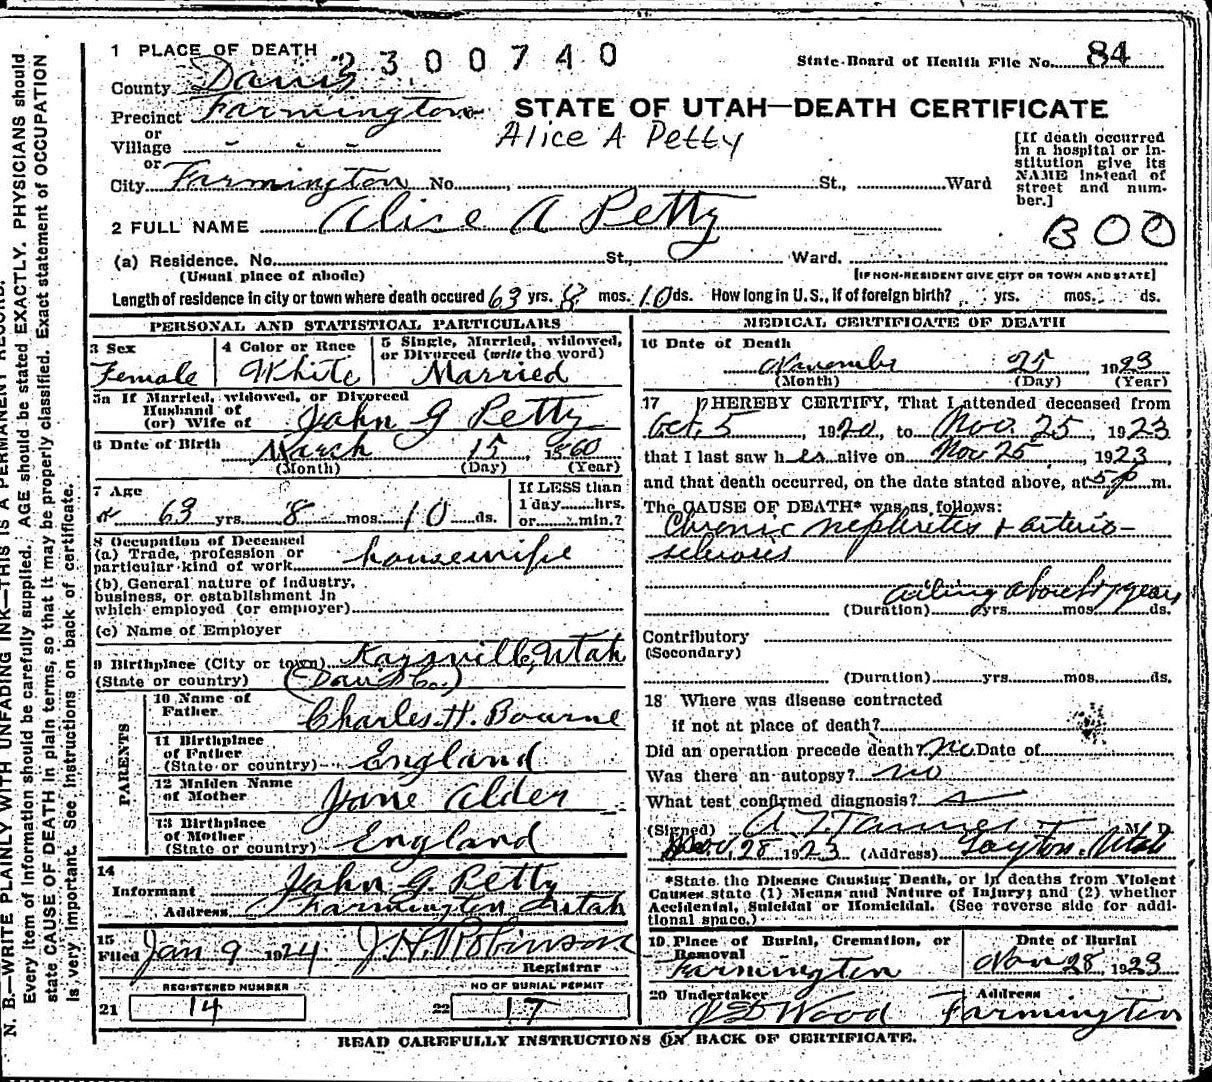 1 PLACE OF DEATH
2300740
State Board of Health File No. 84
County Davis
Precinct Farmington
or
Village - - -
or
City Farmington No. , St., Ward
STATE OF UTAH—DEATH CERTIFICATE
Alice A Petty
[If death occurred in a hospital or institution give its NAME instead of street and number.]
2 FULL NAME Alice A Petty
BOO
(a) Residence. No. St., Ward.
(Usual place of abode)
[IF NON-RESIDENT GIVE CITY OR TOWN AND STATE]
Length of residence in city or town where death occured 63 yrs. 8 mos. 10 ds. How long in U.S., if of foreign birth? yrs. mos. ds.
PERSONAL AND STATISTICAL PARTICULARS
3 Sex
Female
4 Color or Race
White
5 Single, Married, widowed, or Divorced (write the word)
Married
5a If Married, widowed, or Divorced
Husband of
(or) Wife of John G Petty
6 Date of Birth March 15, 1860
(Month) (Day) (Year)
7 Age
63 yrs. 8 mos. 10 ds.
If LESS than
1 day hrs.
or min.?
8 Occupation of Deceased
(a) Trade, profession or
particular kind of work housewife
(b) General nature of industry,
business, or establishment in
which employed (or employer)
(c) Name of Employer
9 Birthplace (City or town) Kaysville, Utah
(State or country) (Davis Co.)
PARENTS
10 Name of
Father Charles H. Bourne
11 Birthplace
of Father
(State or country) England
12 Maiden Name
of Mother Jane Alder
13 Birthplace
of Mother
(State or country) England
14
Informant John G. Petty
Address Farmington Utah
15
Filed Jan 9 1924 J.H. Robinson
Registrar
REGISTERED NUMBER
21 14
NO OF BURIAL PERMIT
22 17
MEDICAL CERTIFICATE OF DEATH
16 Date of Death
November 25, 1923
(Month) (Day) (Year)
17 I HEREBY CERTIFY, That I attended deceased from
Oct. 5, 1920, to Nov. 25, 1923
that I last saw her alive on Nov 25, 1923,
and that death occurred, on the date stated above, at 5 p m.
The CAUSE OF DEATH* was as follows:
Chronic nephrites + arterio-
scleroses
ailing about years
(Duration) yrs. mos. ds.
Contributory
(Secondary)
(Duration) yrs. mos. ds.
18 Where was disease contracted
if not at place of death?
Did an operation precede death? no Date of
Was there an autopsy? no
What test confirmed diagnosis?
(Signed) M. D.
Nov. 28 1923 (Address) Layton. Utah
*State the Disease Causing Death, or in deaths from Violent
Causes state (1) Means and Nature of Injury; and (2) whether
Accidental, Suicidal or Homicidal. (See reverse side for addi-
tional space.)
19 Place of Burial, Cremation, or
Removal
Farmington
Date of Burial
Nov 28, 1923
20 Undertaker
J D Wood
Address
Farmington
READ CAREFULLY INSTRUCTIONS ON BACK OF CERTIFICATE.
N. B.—WRITE PLAINLY WITH UNFADING INK—THIS IS A PERMANENT RECORD.
Every item of information should be carefully supplied. AGE should be stated EXACTLY. PHYSICIANS should
state CAUSE OF DEATH in plain terms, so that it may be properly classified. Exact statement of OCCUPATION
is very important. See instructions on back of certificate.